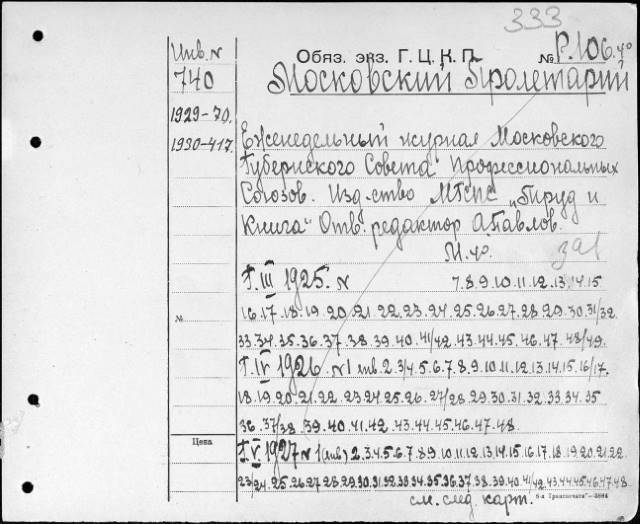 333
Инв. N Обяз. экз. Г. Ц. К. П. № Р.106. 4°
740 Московский Пролетарий
1929-70.
1930-417. Еженедельный журнал Московского
Губернского Совета Профессиональных
Союзов. Изд-ство МГСПС „Труд и
Книга“ Отв. редактор А.Павлов.
М. 4°. за1
Г. III 1925. N 7.8.9.10.11.12.13.14.15
16.17.18.19.20.21.22.23.24.25.26.27.28.29.30.31/32
№
33.34.35.36.37.38.39.40.41/42.43.44.45.46.47.48/49.
Г. IV 1926. N1 янв. 2.3/4.5.6.7.8.9.10.11.12.13.14.15.16/17.
18.19.20.21.22.23.24.25.26.27/28.29.30.31.32.33.34.35
36.37/38.39.40.41.42.43.44.45.46.47.48.
Цена Г. V. 1927 N 1(янв) 2.3.4.5.6.7.8.9.10.11.12.13.14.15.16.17.18.19.20.21.22
23/24.25.26.27.28.29.30.31.32.33.34.35.36.37.38.39.40.41/42.43.44.45.46.47.48.
см. след. карт. 6-я Транспечать—3864